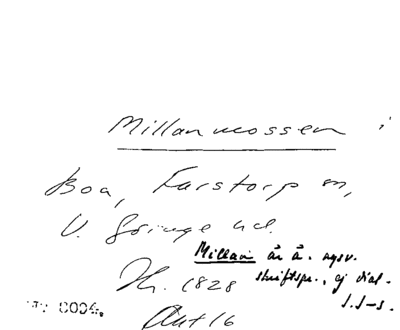 Millanmossen i
Boa, Farstorp sn,
V. Göinge hd.
Millan är å. nysv.
skriftspr., ej dial.
Hr. 1828
J.S-s.
Akt 16